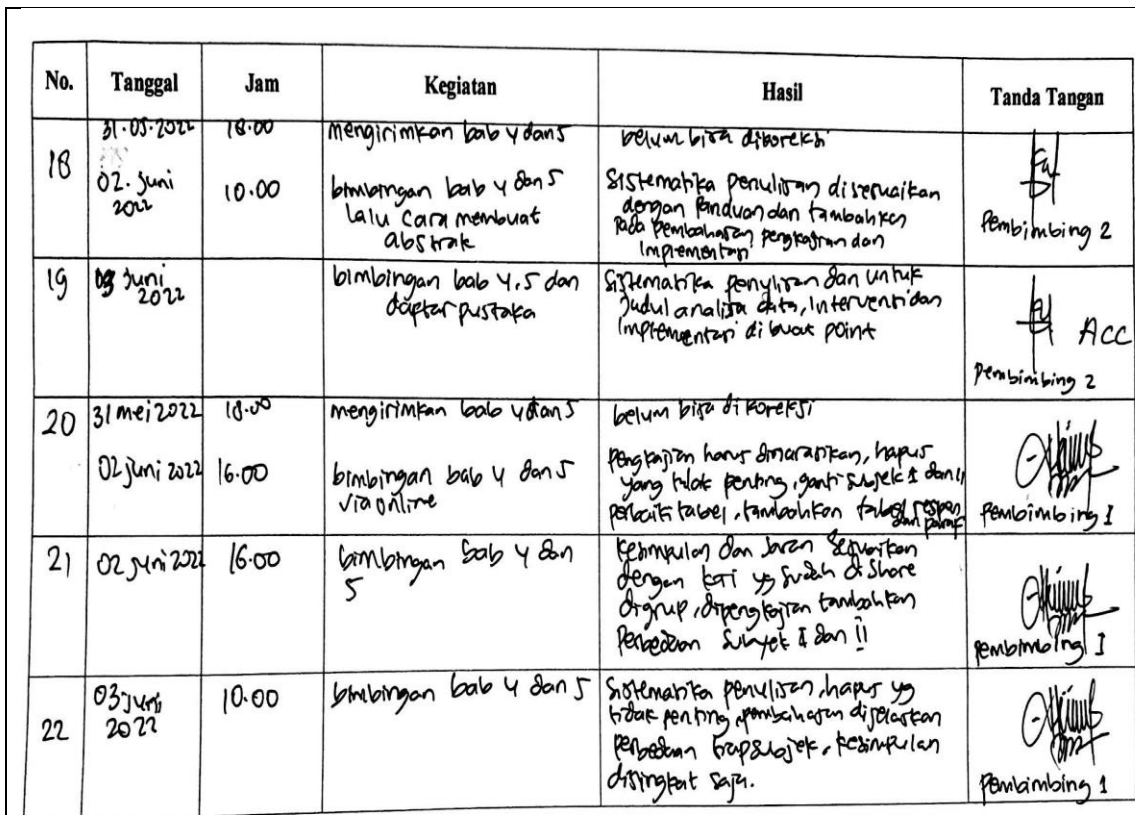 No. Tanggal Jam Kegiatan Hasil Tanda Tangan
18
31-05-2022 18.00 mengirimkan bab 4 dan 5 belum bisa dikoreksi
02. Juni 2022
10.00
bimbingan bab 4 dan 5
lalu cara membuat
abstrak
Sistematika penulisan disesuaikan
dengan Panduan dan tambahkan
Pada pembahasan pengkajian dan
Implementasi
Pembimbing 2
19
03 Juni
2022
bimbingan bab 4,5 dan
daftar pustaka
Sistematika penulisan dan untuk
Judul analisa data, Intervensi dan
Implementasi di buat point
ACC
Pembimbing 2
20
31 mei 2022 18.00 mengirimkan bab 4 dan 5 belum bisa dikoreksi
02 juni 2022 16.00
bimbingan bab 4 dan 5
via online
Pengkajian harus dinarasikan, hapus
yang tidak penting, ganti subjek I dan II
perbaiki tabel, tambahkan tabel respon
dan paraf
Pembimbing I
21
02 juni 2022 16.00
bimbingan bab 4 dan
5
Kesimpulan dan saran sesuaikan
dengan KTI yg sudah di share
digrup, dipengkajian tambahkan
Perbedaan Subyek I dan II
Pembimbing I
22
03 juni
2022
10.00
bimbingan bab 4 dan 5
Sistematika penulisan, hapus yg
tidak penting, pembahasan dijelaskan
perbedaan tiap subjek, kesimpulan
disingkat saja.
Pembimbing 1